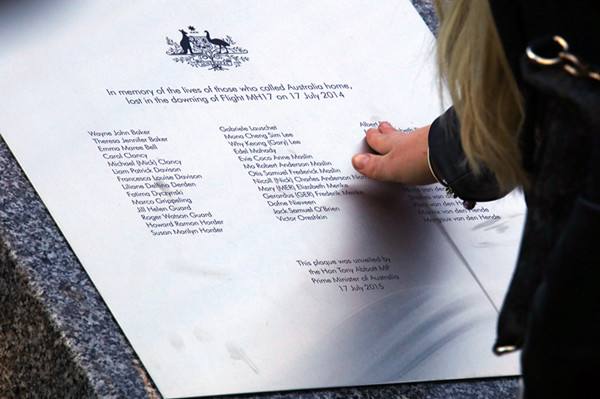 In memory of the lives of those who called Australia home,
lost in the downing of Flight MH17 on 17 July 2014
Wayne John Baker
Theresa Jennifer Baker
Emma Maree Bell
Carol Clancy
Michael (Mick) Clancy
Liam Patrick Davison
Francesca Louise Davison
Liliane Derden
Fatima Dyczynski
Marco Grippeling
Jill Helen Guard
Roger Watson Guard
Howard Ramon Horder
Susan Marilyn Horder
Gabriele Lauschet
Mona Cheng Sim Lee
Why Keong (Gary) Lee
Edel Mahady
Evie Coco Anne Maslin
Mo Robert Anderson Maslin
Otis Samuel Frederick Maslin
Nicoll (Nick) Charles Anderson
Mary (MER) Elizabeth Menke
Gerardus (GER) Frederick Menke
Dafne Nieveen
Jack Samuel O'Brien
Victor Oreshkin
Albert
van den
van den Hende
van den Hende
This plaque was unveiled by
the Hon Tony Abbott MP
Prime Minister of Australia
17 July 2015